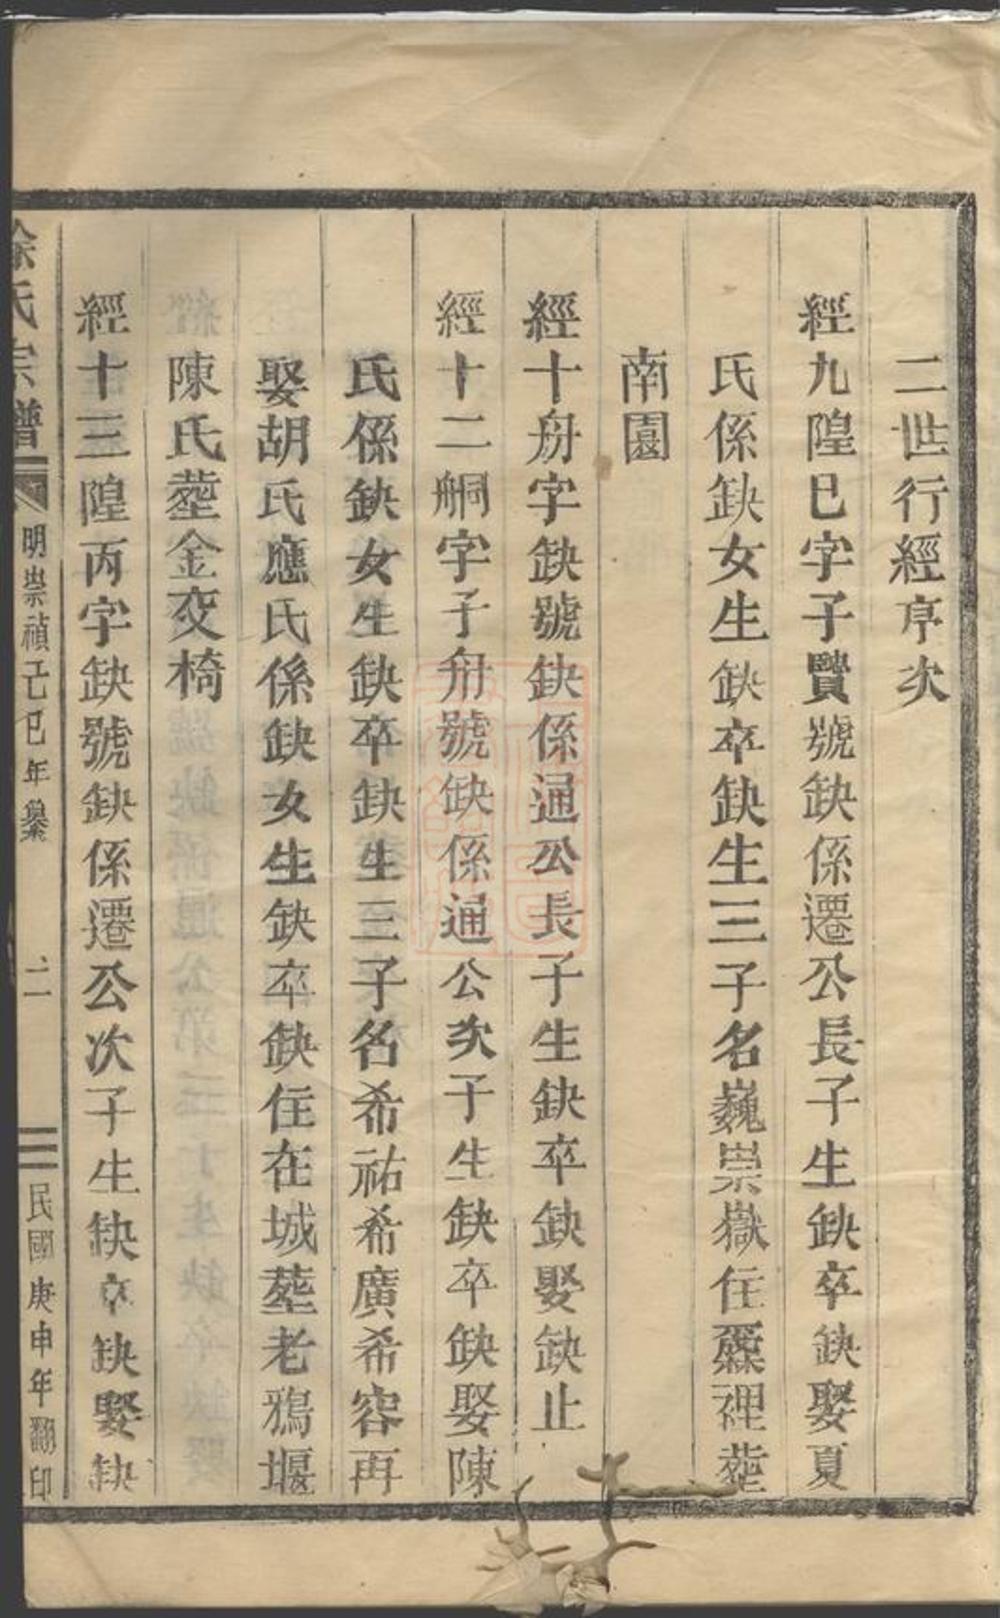 二世行經序次
經九隍巳字子賢號缺係遷公長子生缺卒缺娶夏
氏係缺女生缺卒缺生三子名巍崇嶽住裡塟
南園
經十舟字缺號缺係通公長子生缺卒缺娶缺止
經十二舸字子舟號缺係通公次子生缺卒缺娶陳
氏係缺女生缺卒缺生三子名希祐希廣希容再
娶胡氏應氏係缺女生缺卒缺住在城塟老鴉堰
陳氏塟金交椅
經十三隍丙字缺號缺係遷公次子生缺卒缺娶缺
徐氏宗譜 明崇禎己巳年纂 二 民國庚申年翻印